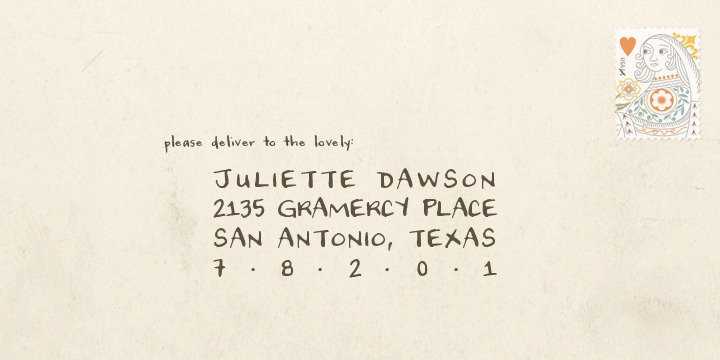 USA
please deliver to the lovely:
JULIETTE DAWSON
2135 GRAMERCY PLACE
SAN ANTONIO, TEXAS
7 · 8 · 2 · 0 · 1